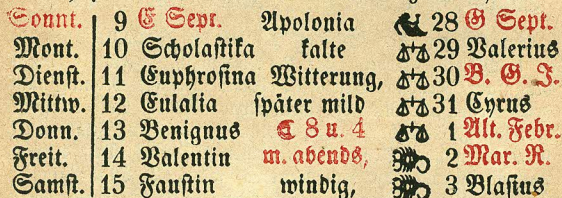 Sonnt. 9 E Sept. Apolonia 28 G Sept.
Mont. 10 Scholastika kalte 29 Valerius
Dienst. 11 Euphrosina Witterung, 30 B. G. J.
Mittw. 12 Eulalia später mild 31 Cyrus
Donn. 13 Benignus ☾ 8 u. 4 1 Alt. Febr.
Freit. 14 Valentin m. abends, 2 Mar. R.
Samst. 15 Faustin windig, 3 Blasius